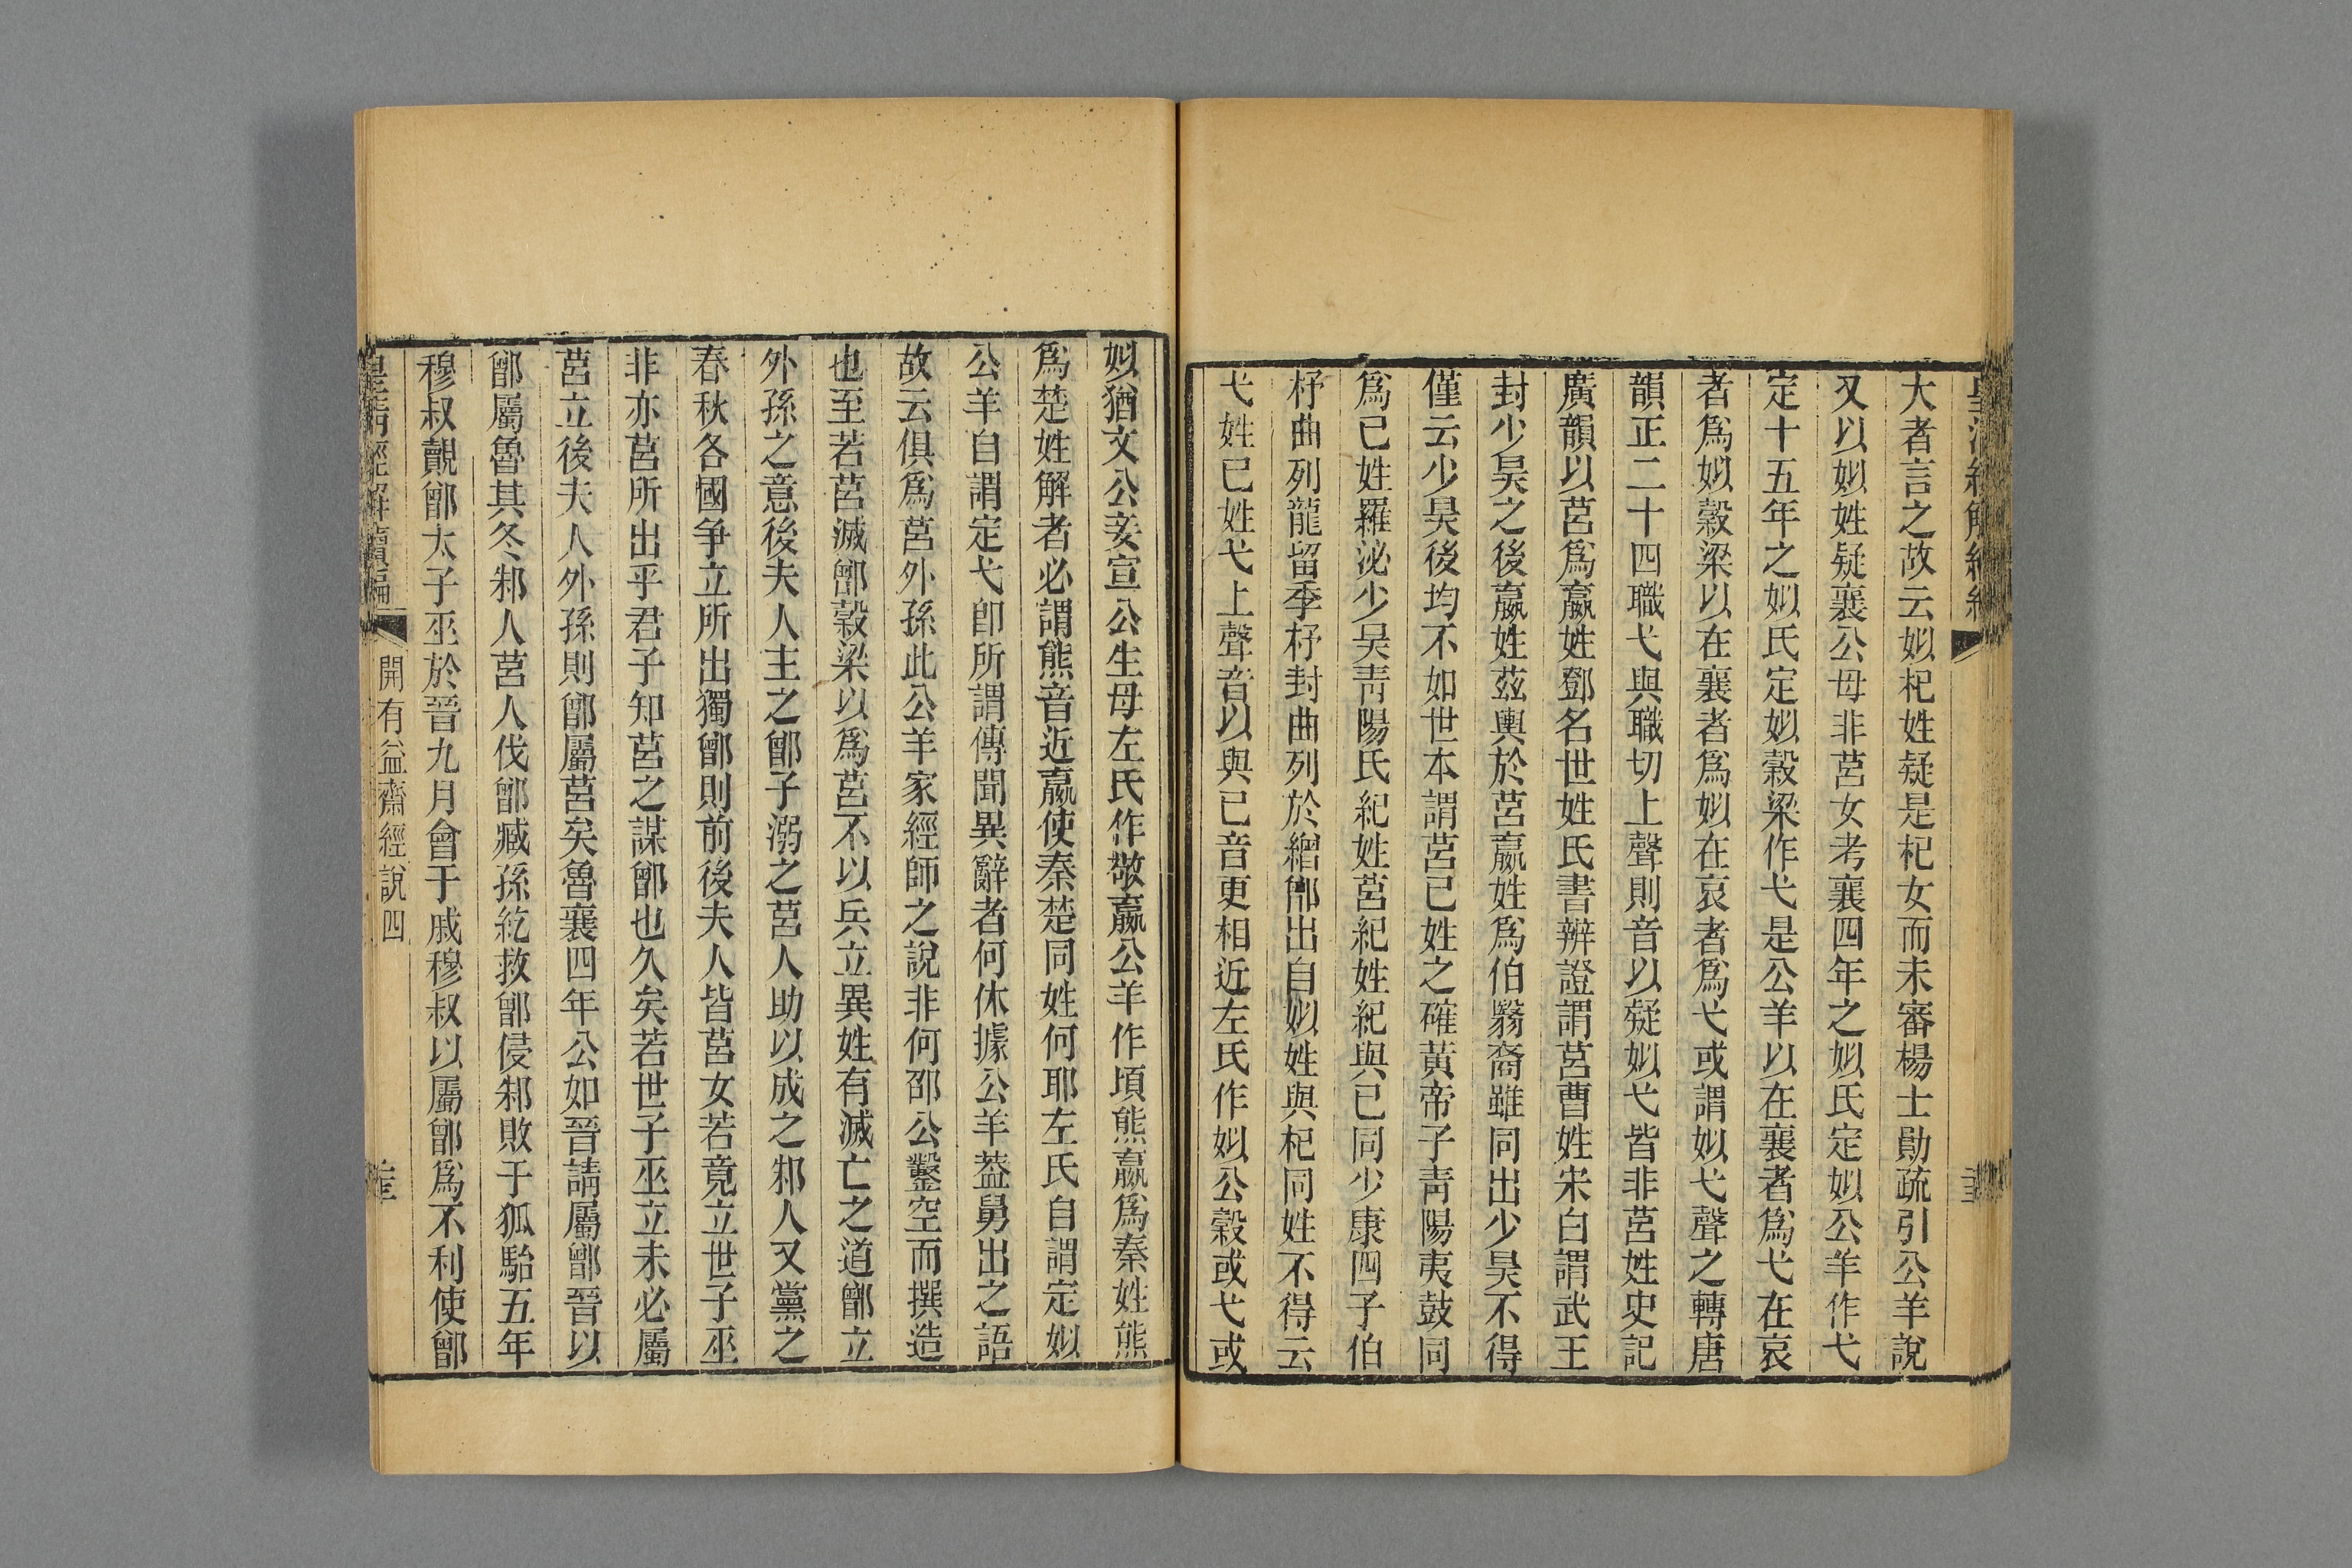 大者言之故云姒杞姓疑是杞女而未審楊士勛疏引公羊說
又以姒姓疑襄公母非莒女考襄四年之姒氏定姒公羊作弋
定十五年之姒氏定姒穀梁作弋是公羊以在襄者爲弋在哀
者爲姒穀梁以在襄者爲姒在哀者爲弋或謂姒弋聲之轉唐
韻正二十四職弋與職切上聲則音以疑姒弋皆非莒姓史記
廣韻以莒爲嬴姓鄧名世姓氏書辨證謂莒曹姓宋白謂武王
封少昊之後嬴姓茲輿於莒嬴姓爲伯翳裔雖同出少昊不得
僅云少昊後均不如世本謂莒己姓之確黃帝子青陽夷鼓同
爲己姓羅泌少昊青陽氏紀姓莒紀姓紀與己同少康四子伯
杼曲列龍留季杼封曲列於繒鄫出自姒姓與杞同姓不得云
弋姓己姓弋上聲音以與己音更相近左氏作姒公穀或弋或
姒猶文公妾宣公生母左氏作敬嬴公羊作頃熊嬴爲秦姓熊
爲楚姓解者必謂熊音近嬴使秦楚同姓何耶左氏自謂定姒
公羊自謂定弋卽所謂傳聞異辭者何休據公羊葢舅出之語
故云俱爲莒外孫此公羊家經師之說非何邵公鑿空而撰造
也至若莒滅鄫穀梁以爲莒不以兵立異姓有滅亡之道鄫立
外孫之意後夫人主之鄫子溺之莒人助以成之邾人又黨之
春秋各國爭立所出獨鄫則前後夫人皆莒女若竟立世子巫
非亦莒所出乎君子知莒之謀鄫也久矣若世子巫立未必屬
莒立後夫人外孫則鄫屬莒矣魯襄四年公如晉請屬鄫晉以
鄫屬魯其冬邾人莒人伐鄫臧孫紇救鄫侵邾敗于狐駘五年
穆叔覿鄫太子巫於晉九月會于戚穆叔以屬鄫爲不利使鄫
皇清經解續編
開有益齋經說四